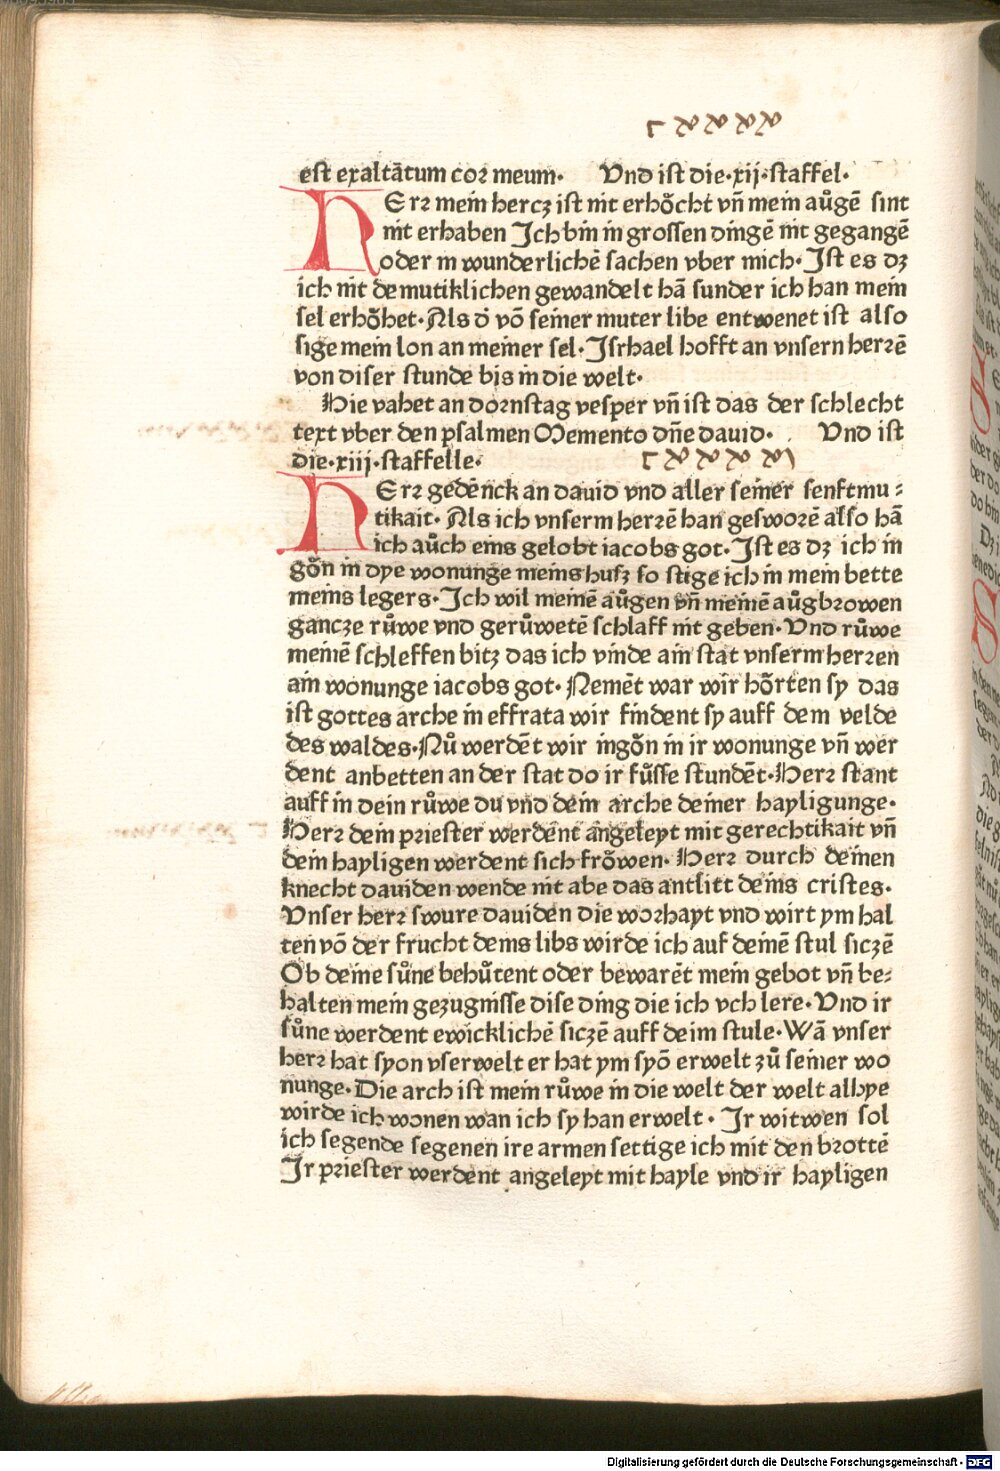 cxxxx
est exaltātum cor meum. Vnd ist die.xij.staffel.
HErr mein hercz ist nit erhöcht vñ mein aůgē sint
nit erhaben Ich bin in grossen dingē nit gegangē
oder in wunderlichē sachen vber mich. Ist es dz
ich nit demutiklichen gewandelt hā sunder ich han mein
sel erhöhet. Als d̄ vō seiner muter libe entwenet ist also
sige mein lon an meiner sel. Isrhael hofft an vnsern herrē
von diser stunde bis in die welt.
Hie vahet an dornstag vesper vñ ist das der schlecht
text vber den psalmen Memento dñe dauid. Vnd ist
die.xiij.staffelle.
cxxxxi
HErr gedēnck an dauid vnd aller seiner senftmu⸗
tikait. Als ich vnserm herrē han gesworē also hā
ich aůch eins gelobt iacobs got. Ist es dz ich in
gǒn in dye wonunge meins husz so stige ich in mein bette
meins legers. Ich wil meinē aůgen vñ meinē aůgbrowen
gancze růwe vnd gerůwetē schlaff nit geben. Vnd růwe
meinē schleffen bitz das ich vinde ain stat vnserm herren
ain wonunge iacobs got. Nemēt war wir hörten sy das
ist gottes arche in effrata wir findent sy auff dem velde
des waldes. Nů werdēt wir ingǒn in ir wonunge vñ wer
dent anbetten an der stat do ir fůsse stundēt. Herr stant
auff in dein růwe du vnd dein arche deiner hayligunge.
Herr dein priester werdent angeleyt mit gerechtikait vñ
dein hayligen werdent sich fröwen. Herr durch deinen
knecht dauiden wende nit abe das antlitt deins cristes.
Vnser herr swure dauiden die worhayt vnd wirt ym hal
ten vō der frucht deins libs wirde ich auf deinē stul siczē
Ob deine sůne behůtent oder bewarēt mein gebot vñ be⸗
halten mein gezugnisse dise ding die ich vch lere. Vnd ir
sůne werdent ewicklichē siczē auff deim stule. Wā vnser
herr hat syon vserwelt er hat ym syō erwelt zů seiner wo
nunge. Die arch ist mein růwe in die welt der welt alhye
wirde ich wonen wan ich sy han erwelt. Ir witwen sol
ich segende segenen ire armen settige ich mit den brottē
Ir priester werdent angeleyt mit hayle vnd ir hayligen
Digitalisierung gefördert durch die Deutsche Forschungsgemeinschaft - DFG